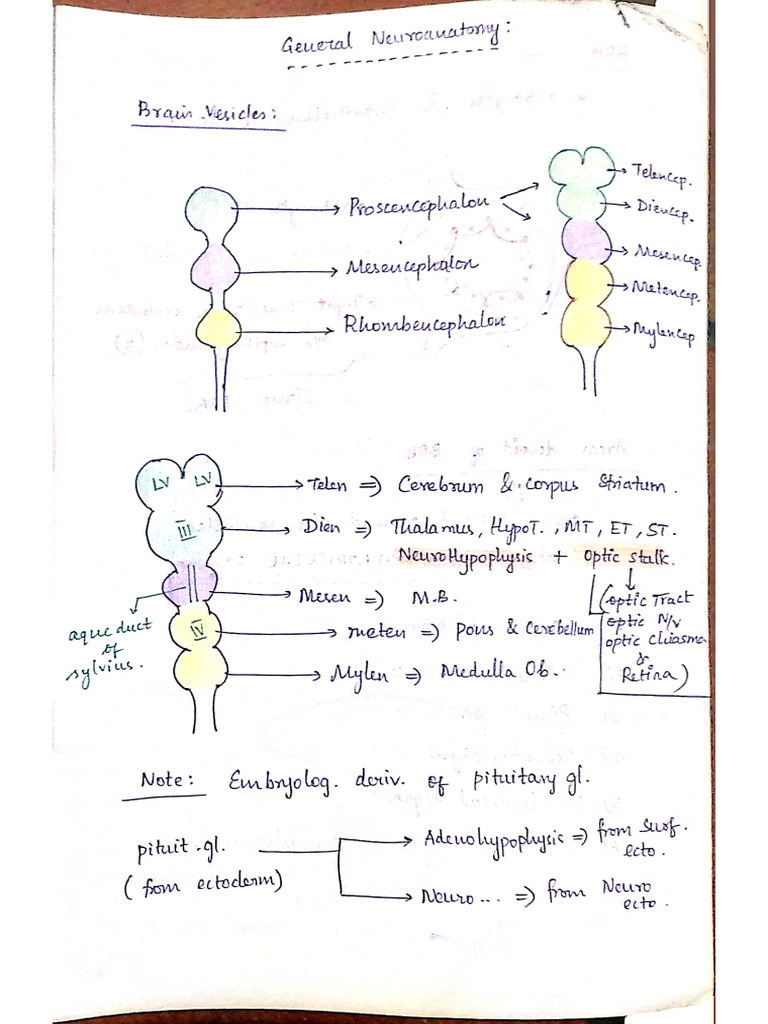 General Neuroanatomy:
Brain Vesicles:
Proscencephalon
Mesencephalon
Rhombencephalon
Telencep.
Diencep.
Mesencep.
Metencep.
Mylencep
LV LV
III
IV
aqueduct
of
sylvius.
Telen => Cerebrum & Corpus Striatum.
Dien => Thalamus, HypoT., MT, ET, ST.
NeuroHypophysis + Optic stalk.
(optic Tract
optic N/v
optic Chiasma
&
Retina)
Mesen => M.B.
meten => Pons & Cerebellum
Mylen => Medulla Ob.
Note: Embryolog. deriv. of pituitary gl.
pituit.gl.
(from ectoderm)
Adenohypophysis => from Surf.
ecto.
Neuro... => from Neuro
ecto.